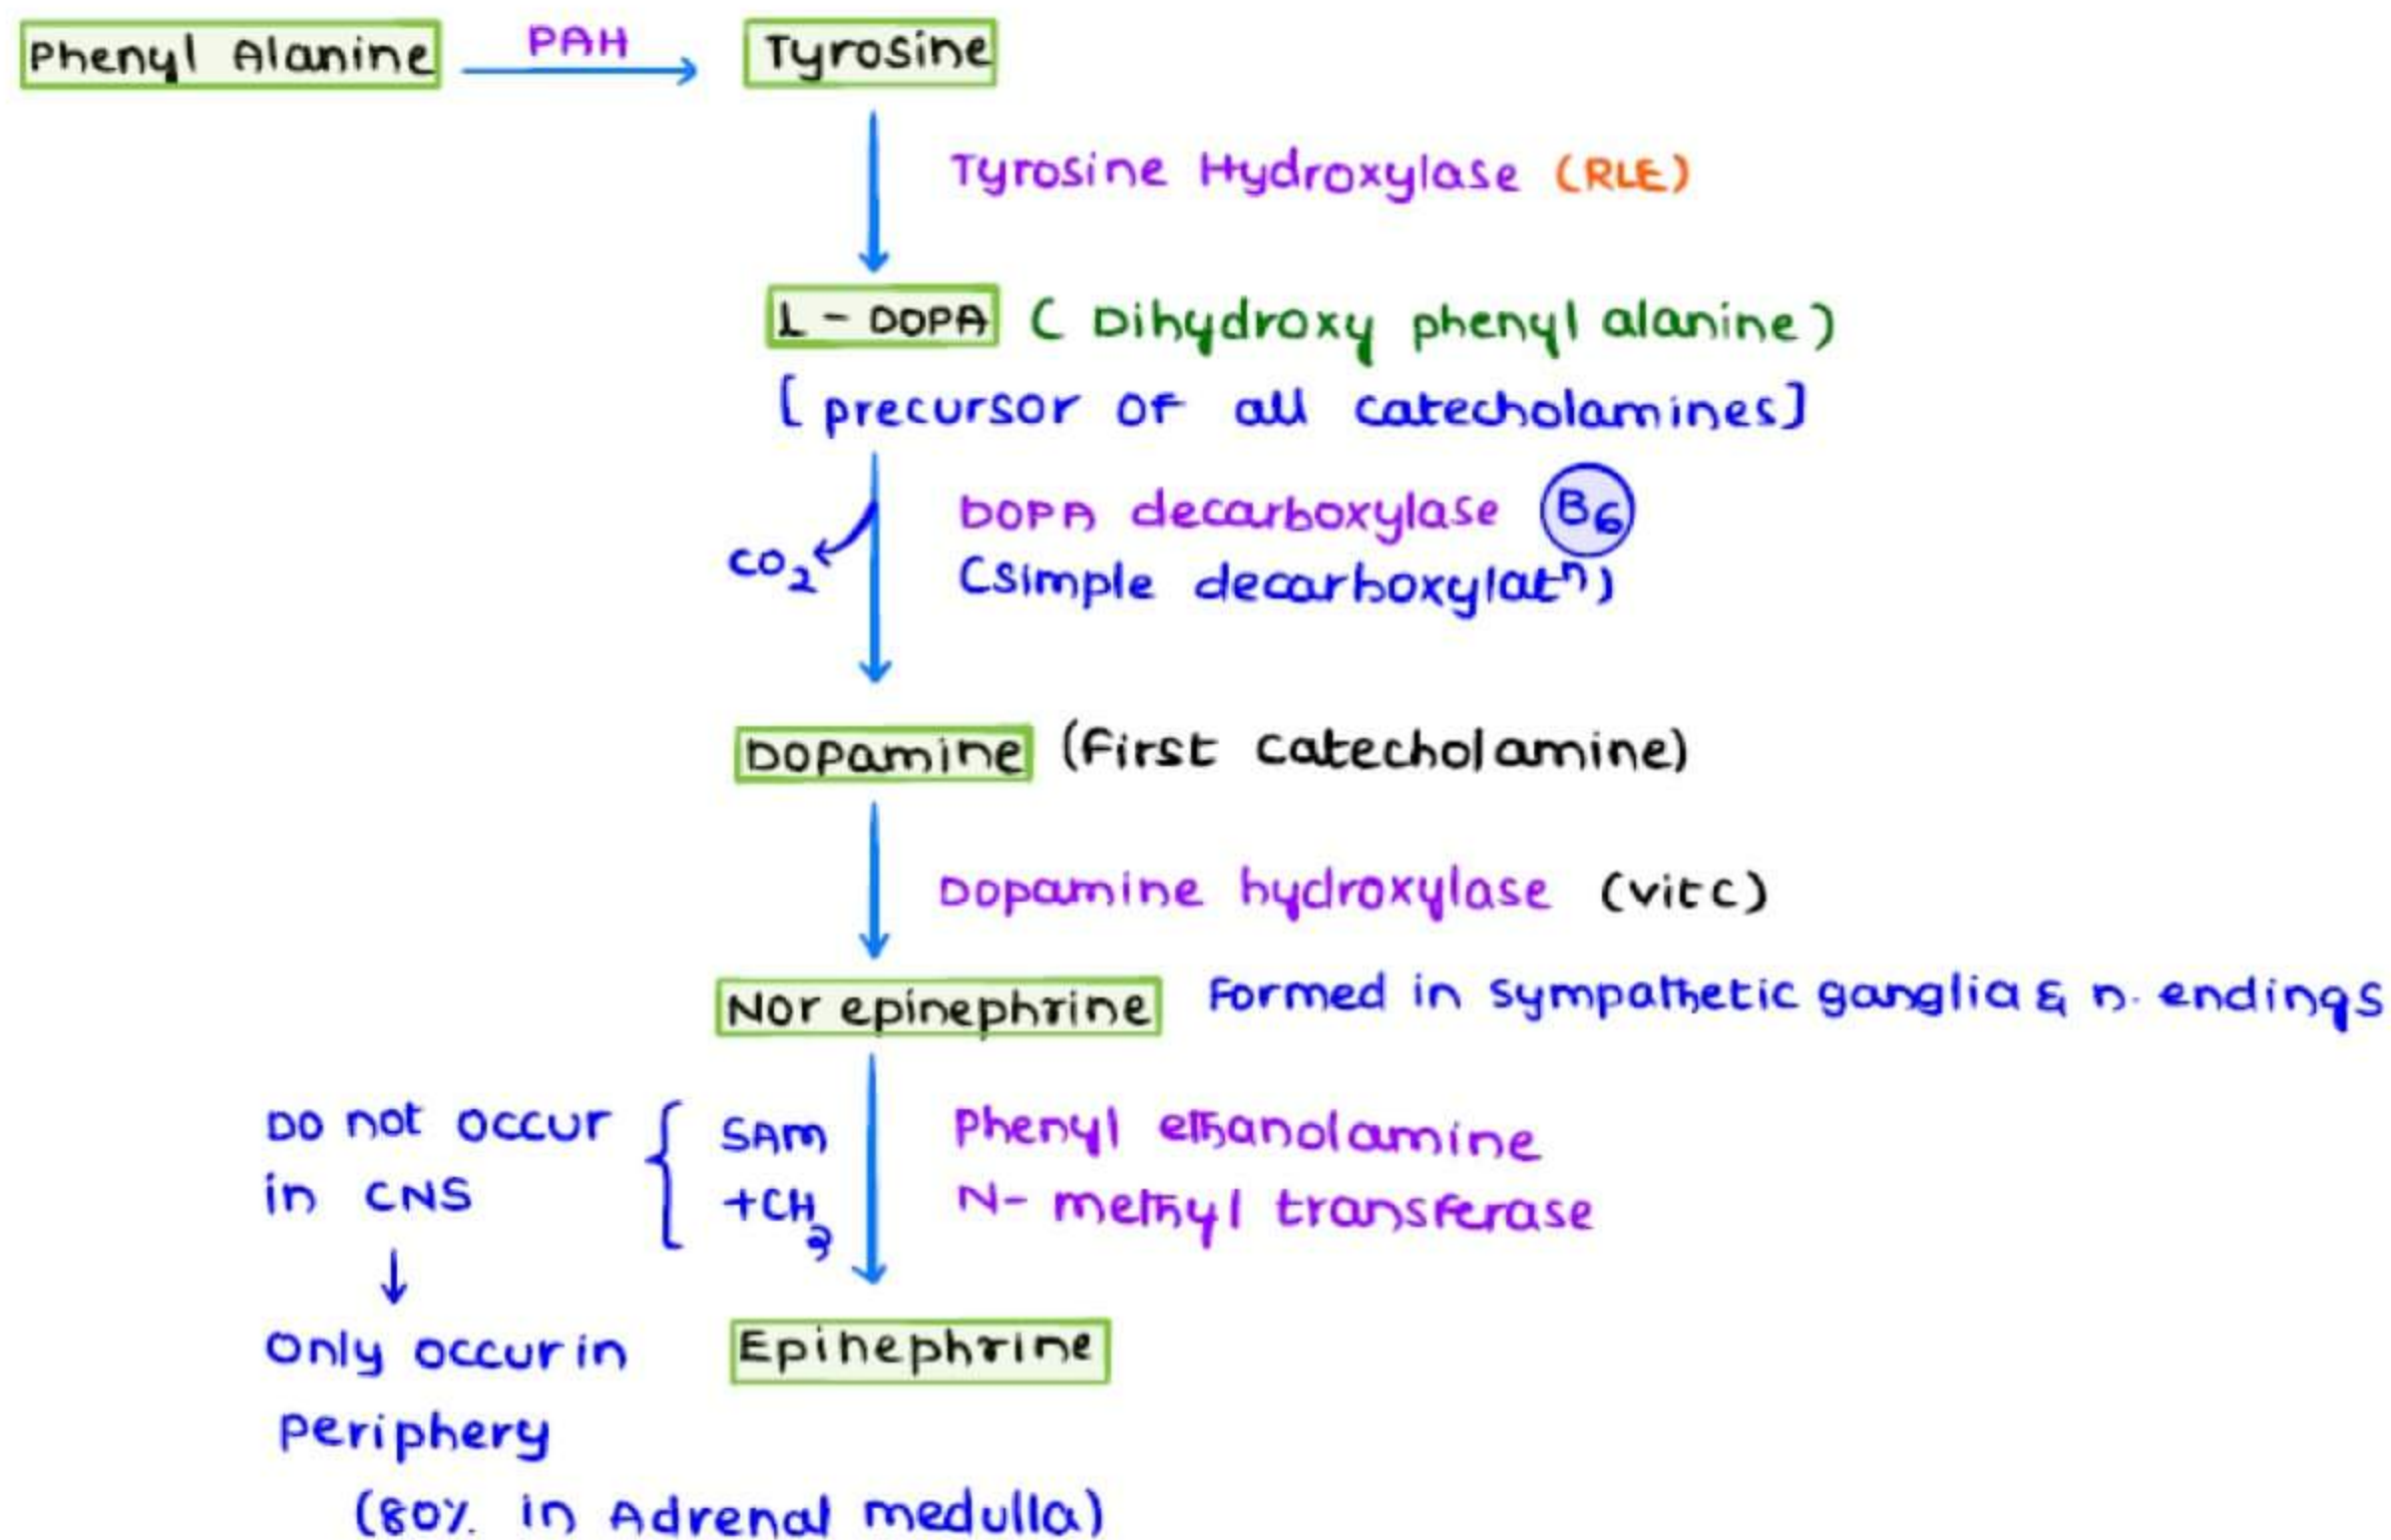 Phenyl Alanine PAH Tyrosine
Tyrosine Hydroxylase (RLE)
L - DOPA ( Dihydroxy phenyl alanine )
[ precursor of all catecholamines]
DOPA decarboxylase B6
CO2 (simple decarboxylatⁿ)
Dopamine (First catecholamine)
Dopamine hydroxylase (vit c)
Nor epinephrine Formed in sympathetic ganglia & n. endings
Do not occur SAM Phenyl ethanolamine
in CNS +CH3 N- methyl transferase
Only occur in Epinephrine
periphery
(80% in Adrenal medulla)